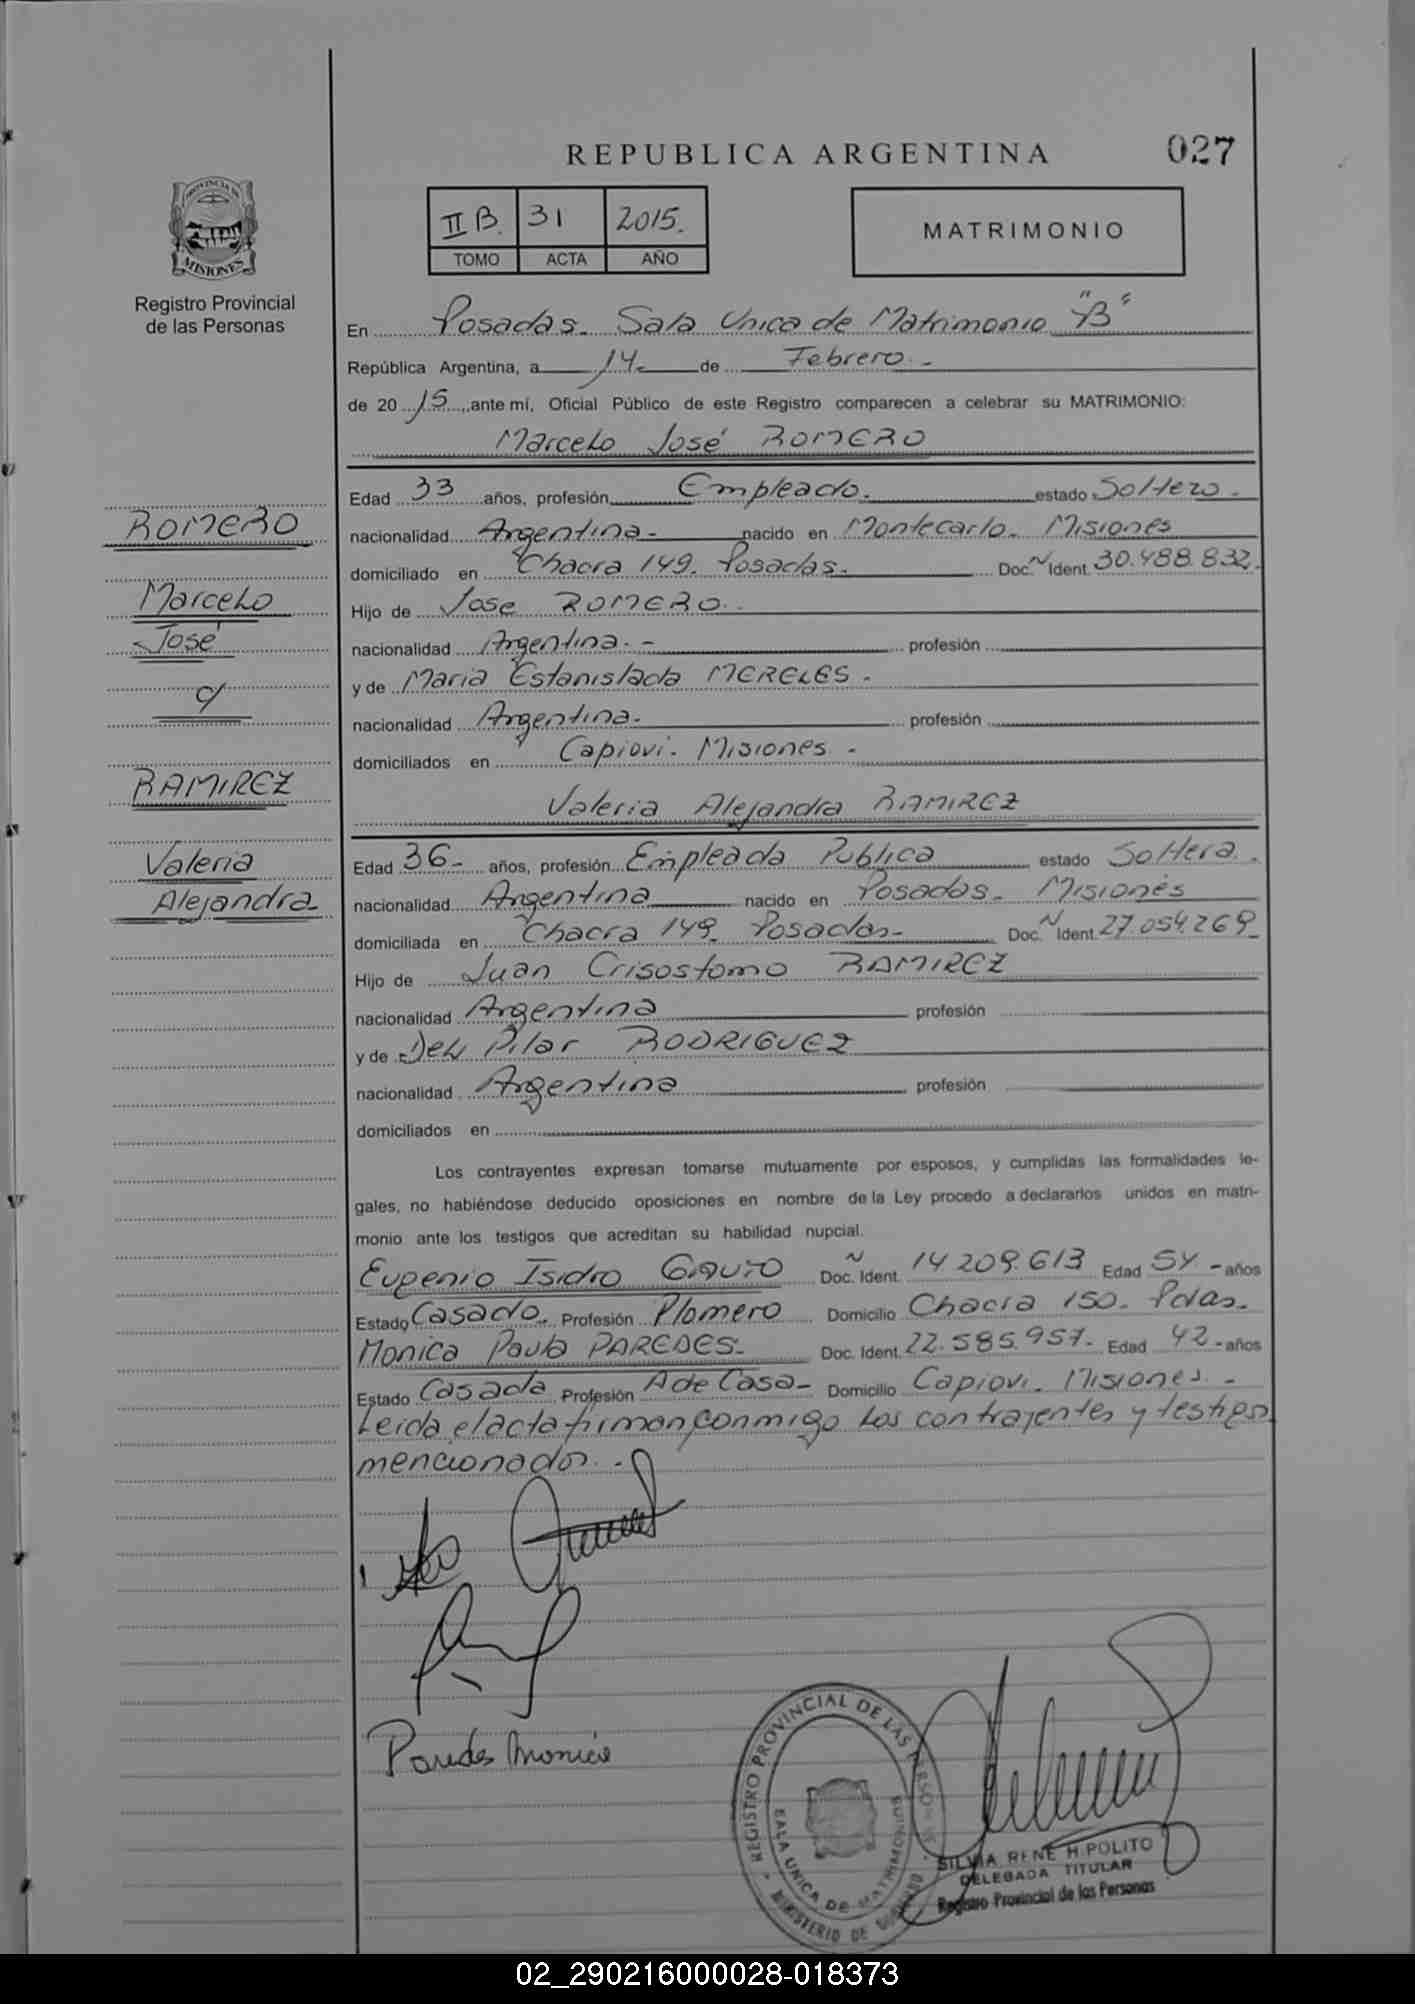 REPUBLICA ARGENTINA 027
PROVINCIA DE
MISIONES
Registro Provincial
de las Personas
II B. 31 2015.
TOMO ACTA AÑO
MATRIMONIO
En Posadas. Sala Unica de Matrimonio "B"
República Argentina, a 14 de Febrero.-
de 2015, ante mí, Oficial Público de este Registro comparecen a celebrar su MATRIMONIO:
Marcelo José ROMERO
Edad 33 años, profesión Empleado. estado Soltero.
ROMERO
nacionalidad Argentina.- nacido en Montecarlo. Misiones
domiciliado en Chacra 149. Posadas. Doc. N Ident. 30.488.832.
Marcelo
Hijo de Jose ROMERO.
José
nacionalidad Argentina.- profesión
c/
y de Maria Estanislada MERELES.
nacionalidad Argentina. profesión
domiciliados en Capiovi. Misiones.
RAMIREZ
Valeria Alejandra RAMIREZ
Valeria
Edad 36- años, profesión Empleada Publica estado Soltera.
Alejandra
nacionalidad Argentina nacido en Posadas. Misiones
domiciliada en Chacra 149. Posadas- Doc. N Ident. 27.054.269
Hijo de Juan Crisostomo RAMIREZ
nacionalidad Argentina profesión
y de Del Pilar RODRIGUEZ
nacionalidad Argentina profesión
domiciliados en
Los contrayentes expresan tomarse mutuamente por esposos, y cumplidas las formalidades le-
gales, no habiéndose deducido oposiciones en nombre de la Ley procedo a declararlos unidos en matri-
monio ante los testigos que acreditan su habilidad nupcial.
Eugenio Isidro GAUTO Doc. N Ident. 14 209.613 Edad 54- años
Estado Casado. Profesión Plomero Domicilio Chacra 150. Pdas.
Monica Paula PAREDES- Doc. Ident. 22.585.957- Edad 42- años
Estado Casada Profesión A de Casa- Domicilio Capiovi. Misiones.-
Leida el acta firman conmigo los contrayentes y testigos
mencionados.-
Paredes Monica
REGISTRO PROVINCIAL DE LAS PERSONAS
SALA UNICA DE MATRIMONIOS
MINISTERIO DE GOBIERNO
SILVIA RENE H. POLITO
DELEGADA TITULAR
Registro Provincial de las Personas
02_290216000028-018373